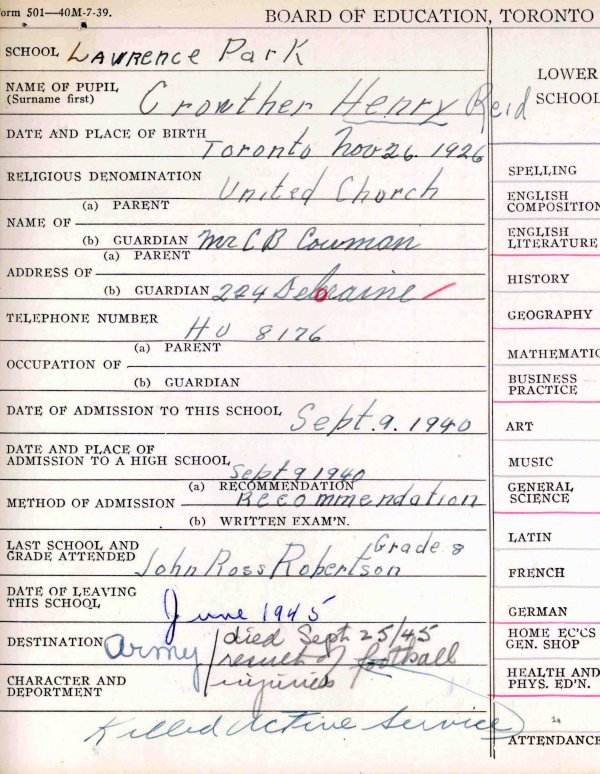 Form 501—40M-7-39.
BOARD OF EDUCATION, TORONTO
SCHOOL Lawrence Park
NAME OF PUPIL
(Surname first) Crowther Henry Reid
DATE AND PLACE OF BIRTH Toronto Nov 26. 1926
RELIGIOUS DENOMINATION United Church
(a) PARENT
NAME OF
(b) GUARDIAN Mr C B Cowman
(a) PARENT
ADDRESS OF
(b) GUARDIAN 224 Deloraine
TELEPHONE NUMBER HU 8176
(a) PARENT
OCCUPATION OF
(b) GUARDIAN
DATE OF ADMISSION TO THIS SCHOOL Sept. 9. 1940
DATE AND PLACE OF
ADMISSION TO A HIGH SCHOOL Sept 9 1940
(a) RECOMMENDATION
METHOD OF ADMISSION Recommendation
(b) WRITTEN EXAM'N.
LAST SCHOOL AND
GRADE ATTENDED John Ross Robertson Grade 8
DATE OF LEAVING
THIS SCHOOL June 1945
DESTINATION Army
died Sept 25/45
result of football
injuries
CHARACTER AND
DEPORTMENT
Killed Active Service
LOWER
SCHOOL
SPELLING
ENGLISH
COMPOSITION
ENGLISH
LITERATURE
HISTORY
GEOGRAPHY
MATHEMATIC
BUSINESS
PRACTICE
ART
MUSIC
GENERAL
SCIENCE
LATIN
FRENCH
GERMAN
HOME EC'CS
GEN. SHOP
HEALTH AND
PHYS. ED'N.
ATTENDANCE